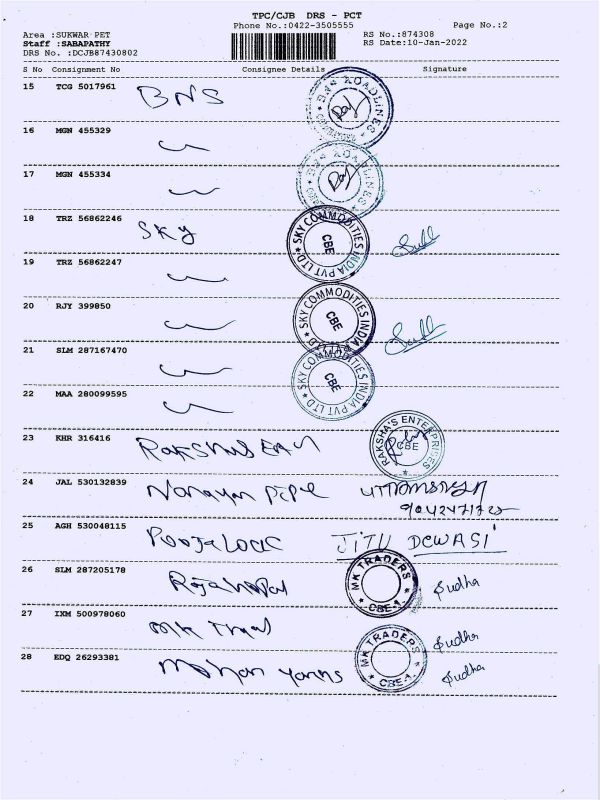 TPC/CJB DRS - PCT
Phone No.:0422-3505555
Page No.:2
Area :SUKWAR PET
Staff :SABAPATHY
DRS No. :DCJB87430802
RS No.:874308
RS Date:10-Jan-2022
S No Consignment No Consignee Details Signature
15 TCG 5017961 BNS
ROADLINES
16 MGN 455329
17 MGN 455334
ROADLINES
18 TRZ 56862246 SKY
SKY COMMODITIES INDIA PVT LTD
CBE
19 TRZ 56862247
20 RJY 399850
SKY COMMODITIES INDIA
CBE
21 SLM 287167470
SKY COMMODITIES INDIA PVT LTD
CBE
22 MAA 280099595
23 KHR 316416
RAKSHA'S ENTERPRISES
CBE
24 JAL 530132839 Narayan Pipe
25 AGH 530048115 Pooja Lock JITU DEWASI
26 SLM 287205178
MK TRADERS
CBE-1
Sudha
27 IXM 500978060 MK
Sudha
28 EDQ 26293381 Mohan yarns
MK TRADERS
CBE-1
Sudha